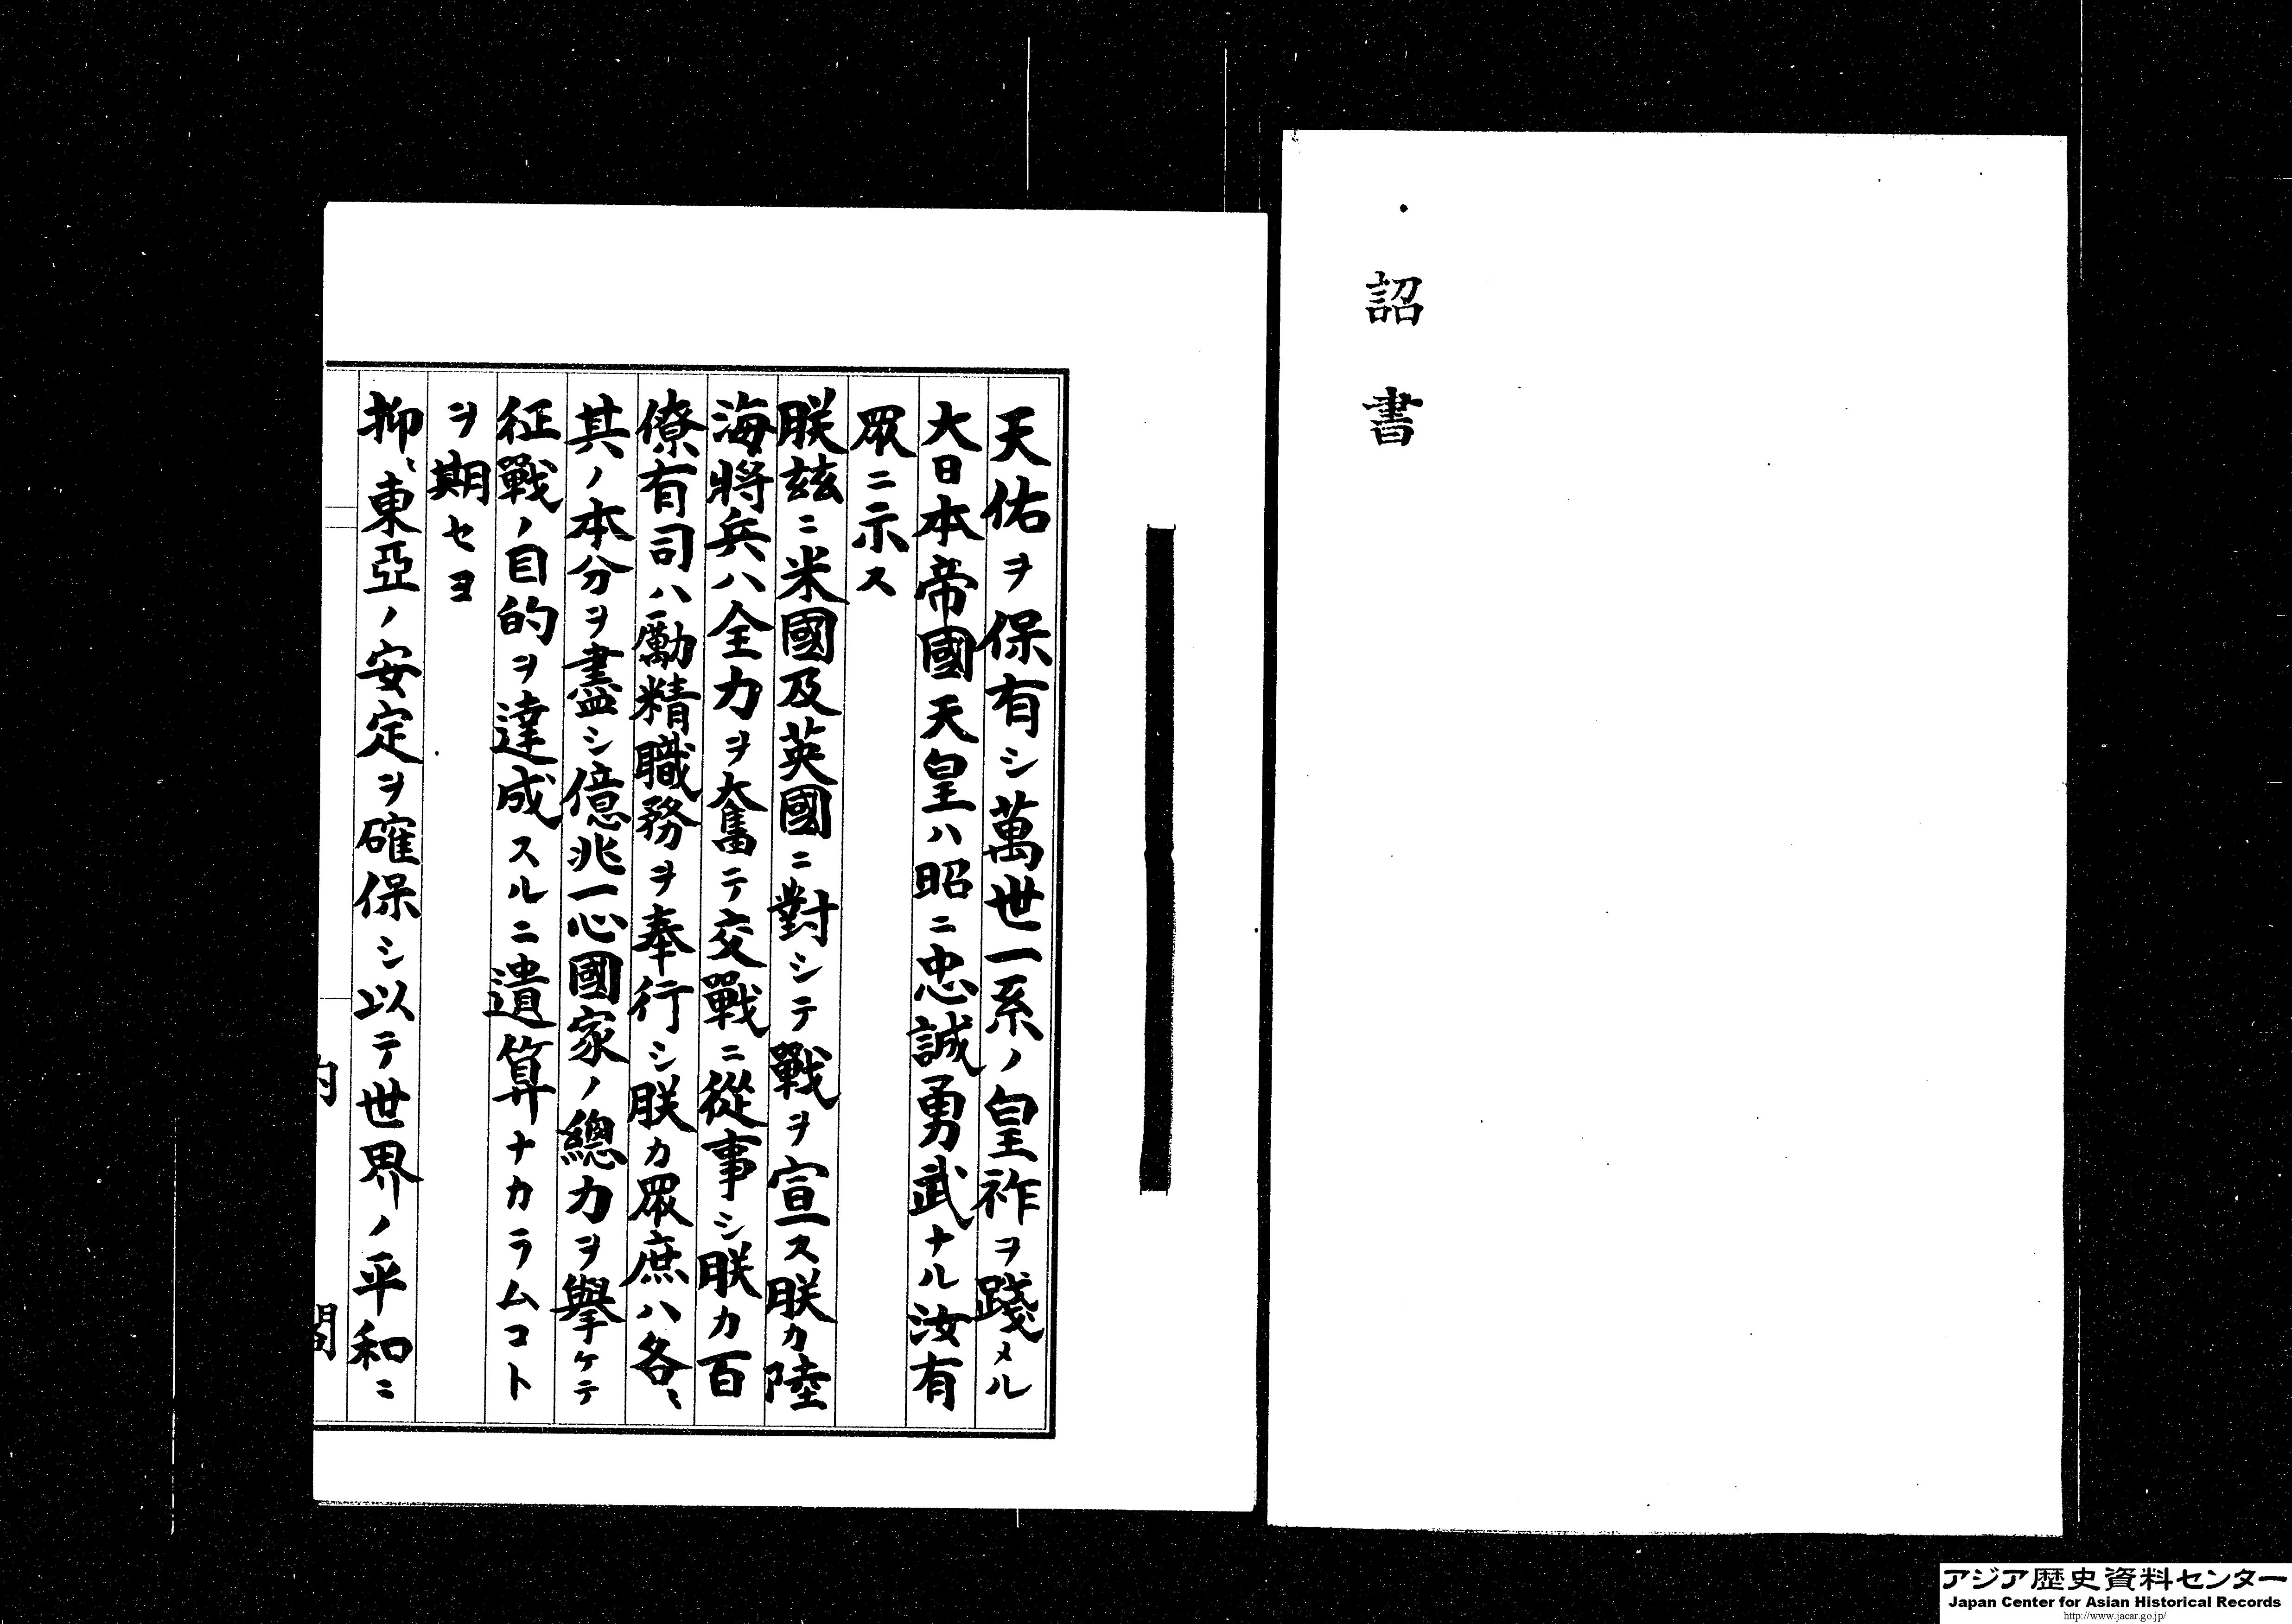 詔書
天佑ヲ保有シ萬世一系ノ皇祚ヲ踐メル
大日本帝國天皇ハ昭ニ忠誠勇武ナル汝有
眾ニ示ス
朕玆ニ米國及英國ニ對シテ戰ヲ宣ス朕カ陸
海將兵ハ全力ヲ奮テ交戰ニ從事シ朕カ百
僚有司ハ勵精職務ヲ奉行シ朕カ眾庶ハ各〻
其ノ本分ヲ盡シ億兆一心國家ノ總力ヲ擧ケテ
征戰ノ目的ヲ達成スルニ遺算ナカラムコト
ヲ期セヨ
抑〻東亞ノ安定ヲ確保シ以テ世界ノ平和ニ
内閣
アジア歴史資料センター
Japan Center for Asian Historical Records
http://www.jacar.go.jp/